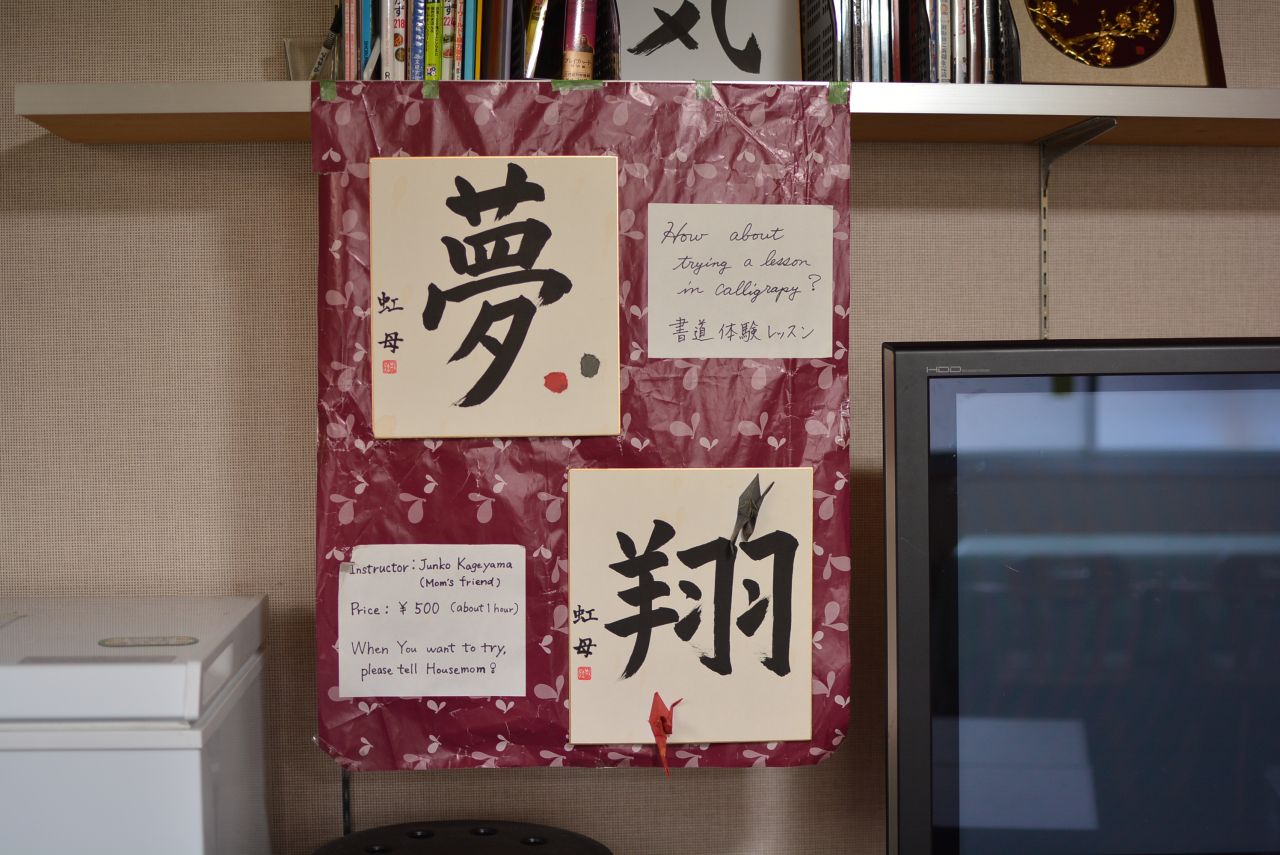 気
218
224
夢
虹
母
How about
trying a lesson
in calligrapy?
書道体験レッスン
Instructor: Junko Kageyama
(Mom's friend)
Price: ¥ 500 (about 1 hour)
When You want to try,
please tell Housemom!
翔
虹
母
HDD